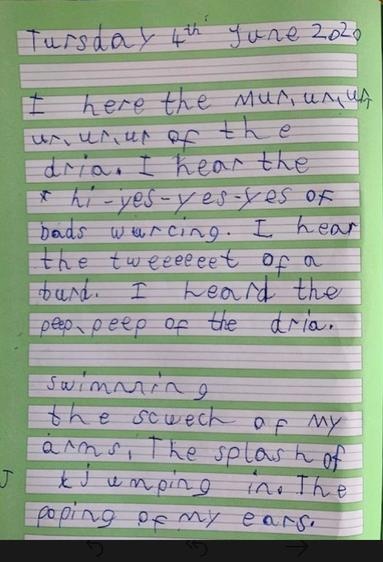 Tursday 4th June 2020
I here the mur, ur, ur, ur
ur, ur, ur of the
dria. I hear the
* hi-yes-yes-yes of
bads wurcing. I hear
the tweeeeeet of a
burd. I heard the
peep, peep of the dria.
swimming
the scwech of my
arms, The splash of
jumping in. The
poping of my ears.